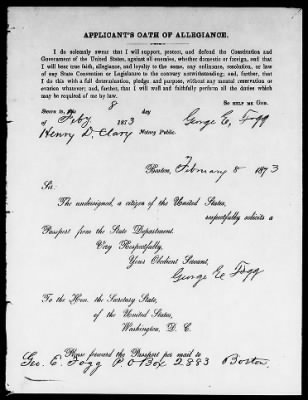 APPLICANT'S OATH OF ALLEGIANCE.
I do solemnly swear that I will support, protect, and defend the Constitution and
Government of the United States, against all enemies, whether domestic or foreign, and that I
will bear true faith, allegiance, and loyalty to the same, any ordinance, resolution, or law
of any State Convention or Legislature to the contrary notwithstanding; and, further, that
I do this with a full determination, pledge, and purpose, without any mental reservation or
evasion whatsoever; and, further, that I will well and faithfully perform all the duties which
may be required of me by law.
SO HELP ME GOD.
SWORN to, this 8 day
of Feby 1873
George E. Fogg
Henry D. Clary Notary Public.
Boston, February 8 1873
Sir.
The undersigned, a citizen of the United States,
respectfully solicits a
Passport from the State Department.
Very Respectfully,
Your Obedient Servant,
George E Fogg
To the Hon. the Secretary State,
of the United States,
Washington, D. C.
Please forward the Passport per mail to
Geo. E. Fogg P.O Box 2883 Boston